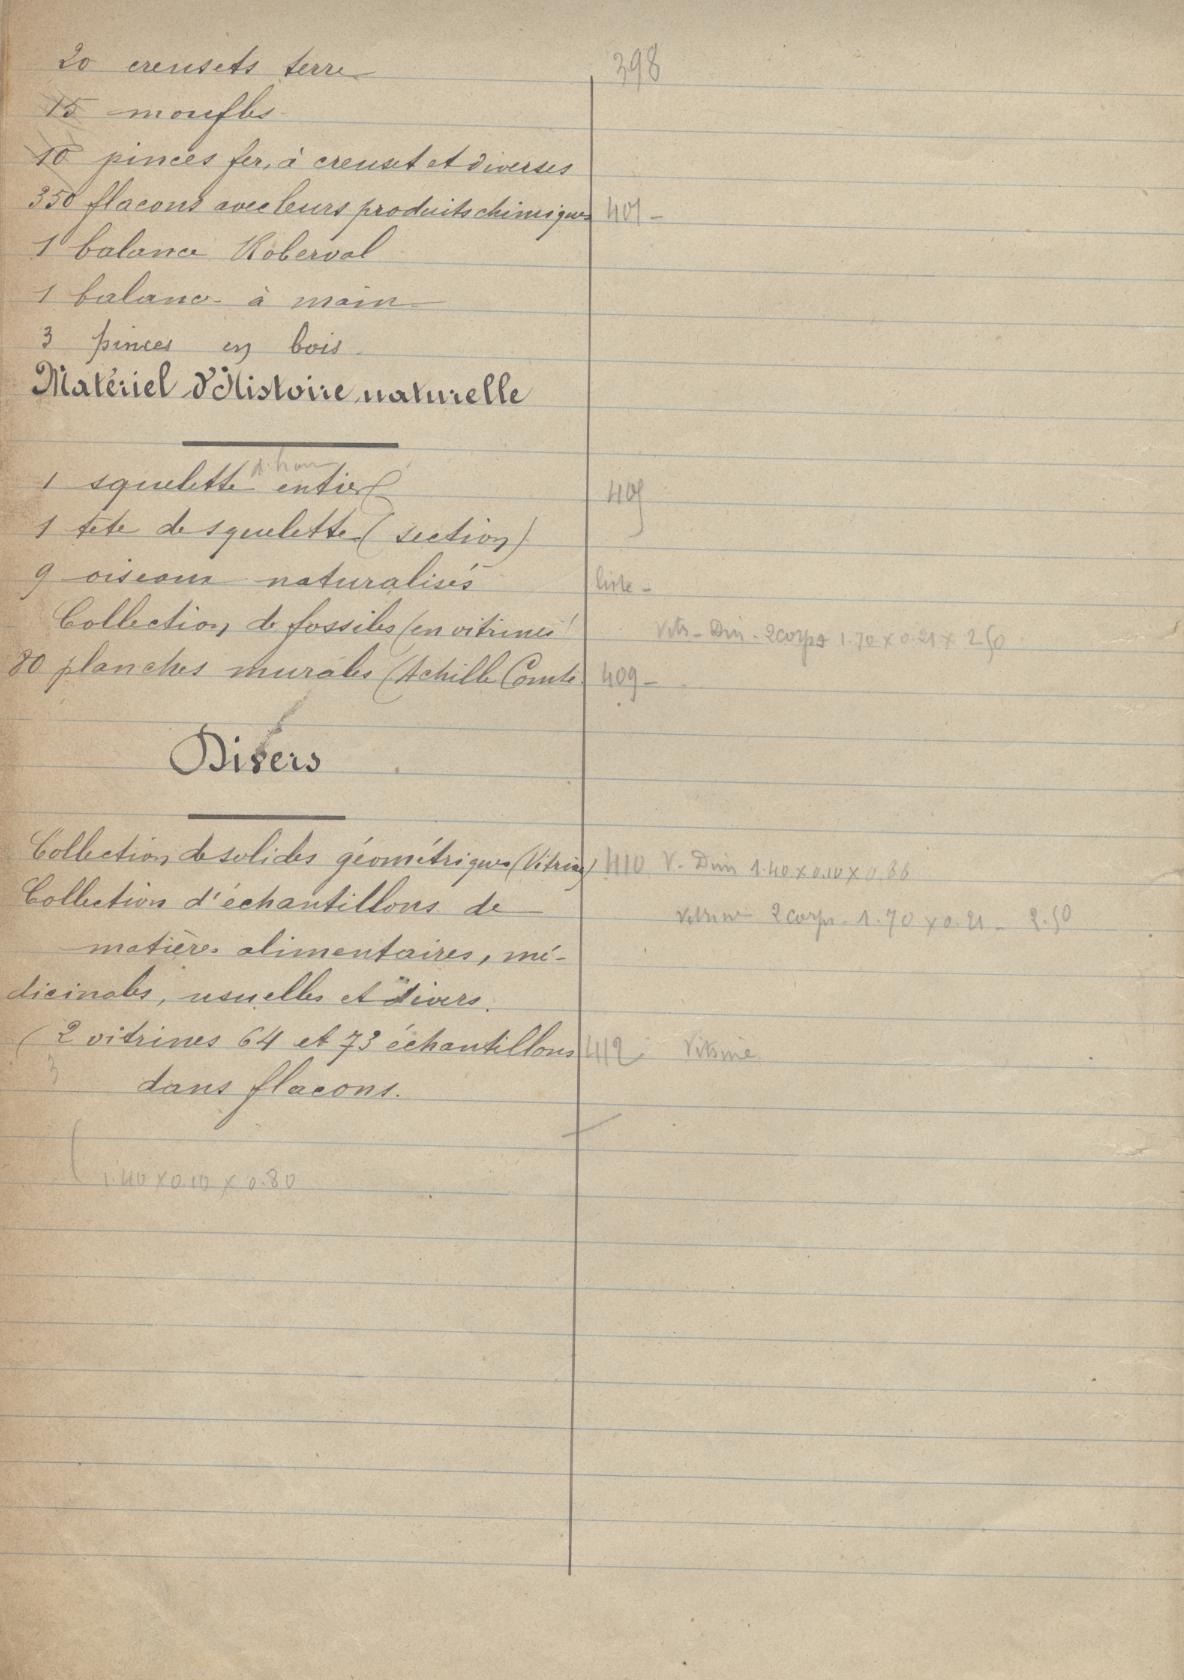 20 creusets terre 398
15 moufles
10 pinces fer, à creuset et diverses
350 flacons avec leurs produits chimiques 401 -
1 balance Roberval
1 balance à main
3 pinces en bois
Matériel d'Histoire naturelle
1 squelette entier
1 tête de squelette (section)
9 oiseaux naturalisés liste -
Collection de fossiles (en vitrines)
Vitr - Dim - 2 corps 1.70 x 0.21 x 2.50
80 planches murales (Achille Comte 409 -
Divers
Collection de solides géométriques (Vitrine) 410 V. Dim 1.40 x 0.10 x 0.86
Collection d'échantillons de
Vitrine 2 corps - 1.70 x 0.21 - 2.50
matières alimentaires, mé-
dicinales, usuelles et divers.
(2 vitrines 64 et 73 échantillons 412 Vitrine
3
dans flacons.
( 1.40 x 0.10 x 0.80